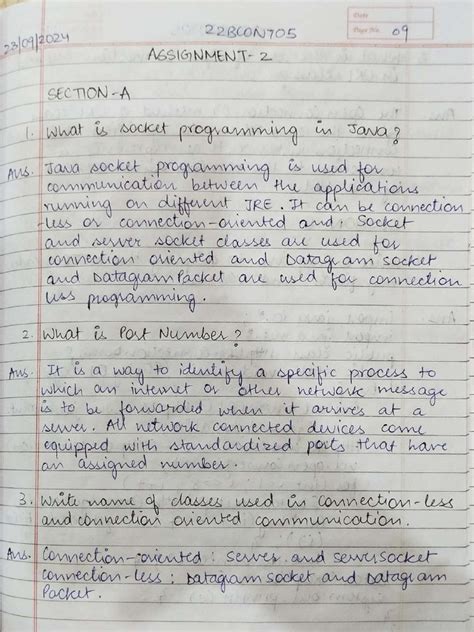 23/09/2024
22BCON705
Date
Page No. 09
ASSIGNMENT-2
SECTION-A
1. What is socket programming in Java?
Ans. Java socket programming is used for
communication between the applications
running on different JRE. It can be connection
-less or connection-oriented and; Socket
and server socket classes are used for
connection oriented and Datagram socket
and Datagram Packet are used for connection
less programming.
2. What is Port Number?
Ans. It is a way to identify a specific process to
which an internet or other network message
is to be forwarded when it arrives at a
server. All network connected devices come
equipped with standardized ports that have
an assigned number.
3. Write name of classes used in connection-less
and connection oriented communication.
Ans. Connection-oriented: Server and serverSocket
connection-less: Datagram socket and Datagram
Packet.